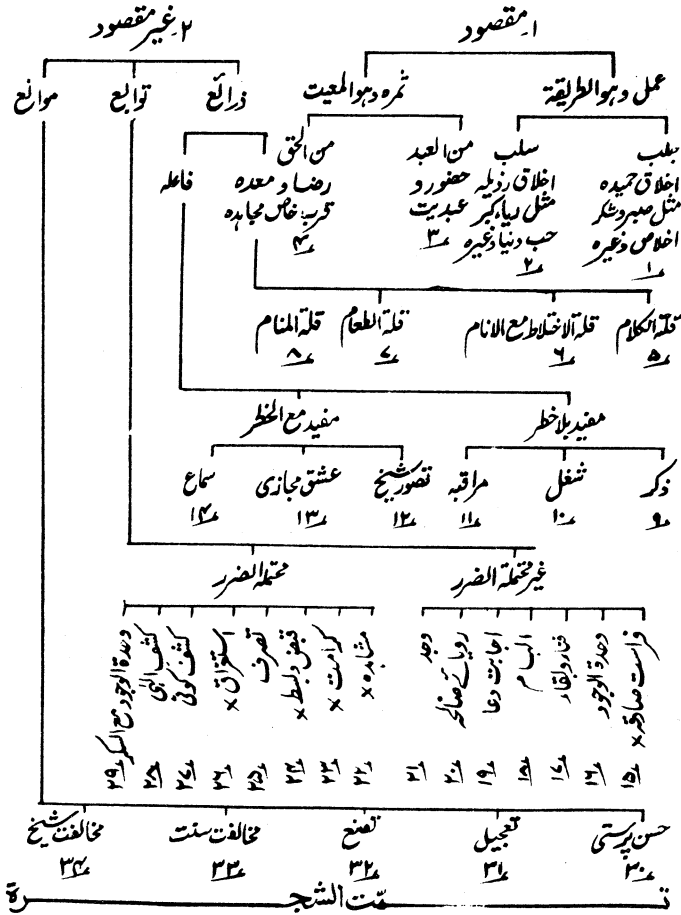 ۱۔ مقصود
۲۔ غیر مقصود
عمل وہو الطریقۃ
ثمرہ وہو المعیت
ذرائع
توابع
موانع
جلب
اخلاق حمیدہ
مثل صبر و شکر
اخلاص وغیرہ
۱
سلب
اخلاق رذیلہ
مثل ریا، کبر
حب دنیا وغیرہ
۲
من العبد
حضور و
عبدیت
۳
من الحق
رضا و معدہ
قرب خاص
۴
مجاہدہ
فاعلہ
قلۃ الکلام
۵
قلۃ الاختلاط مع الانام
۶
قلۃ الطعام
۷
قلۃ المنام
۸
مفید بلا خطر
مفید مع الخطر
ذکر
۹
شغل
۱۰
مراقبہ
۱۱
تصور شیخ
۱۲
عشق مجازی
۱۳
سماع
۱۴
غیر محتملۃ الضرر
محتملۃ الضرر
فراست صادقہ ×
۱۵
وحدۃ الوجود
۱۶
فنا و بقاء
۱۷
الہام
۱۸
اجابت دعا
۱۹
رویائے صالحہ
۲۰
وجد
۲۱
مشاہدہ ×
۲۲
کرامت ×
۲۳
قبض و بسط ×
۲۴
تصرف
۲۵
استغراق ×
۲۶
کشف کونی
۲۷
کشف الٰہی
۲۸
وحدۃ الوجود مع السکر
۲۹
حسن پرستی
۳۰
تعجیل
۳۱
تصنع
۳۲
مخالفت سنت
۳۳
مخالفت شیخ
۳۴
تمّت الشجرۃ